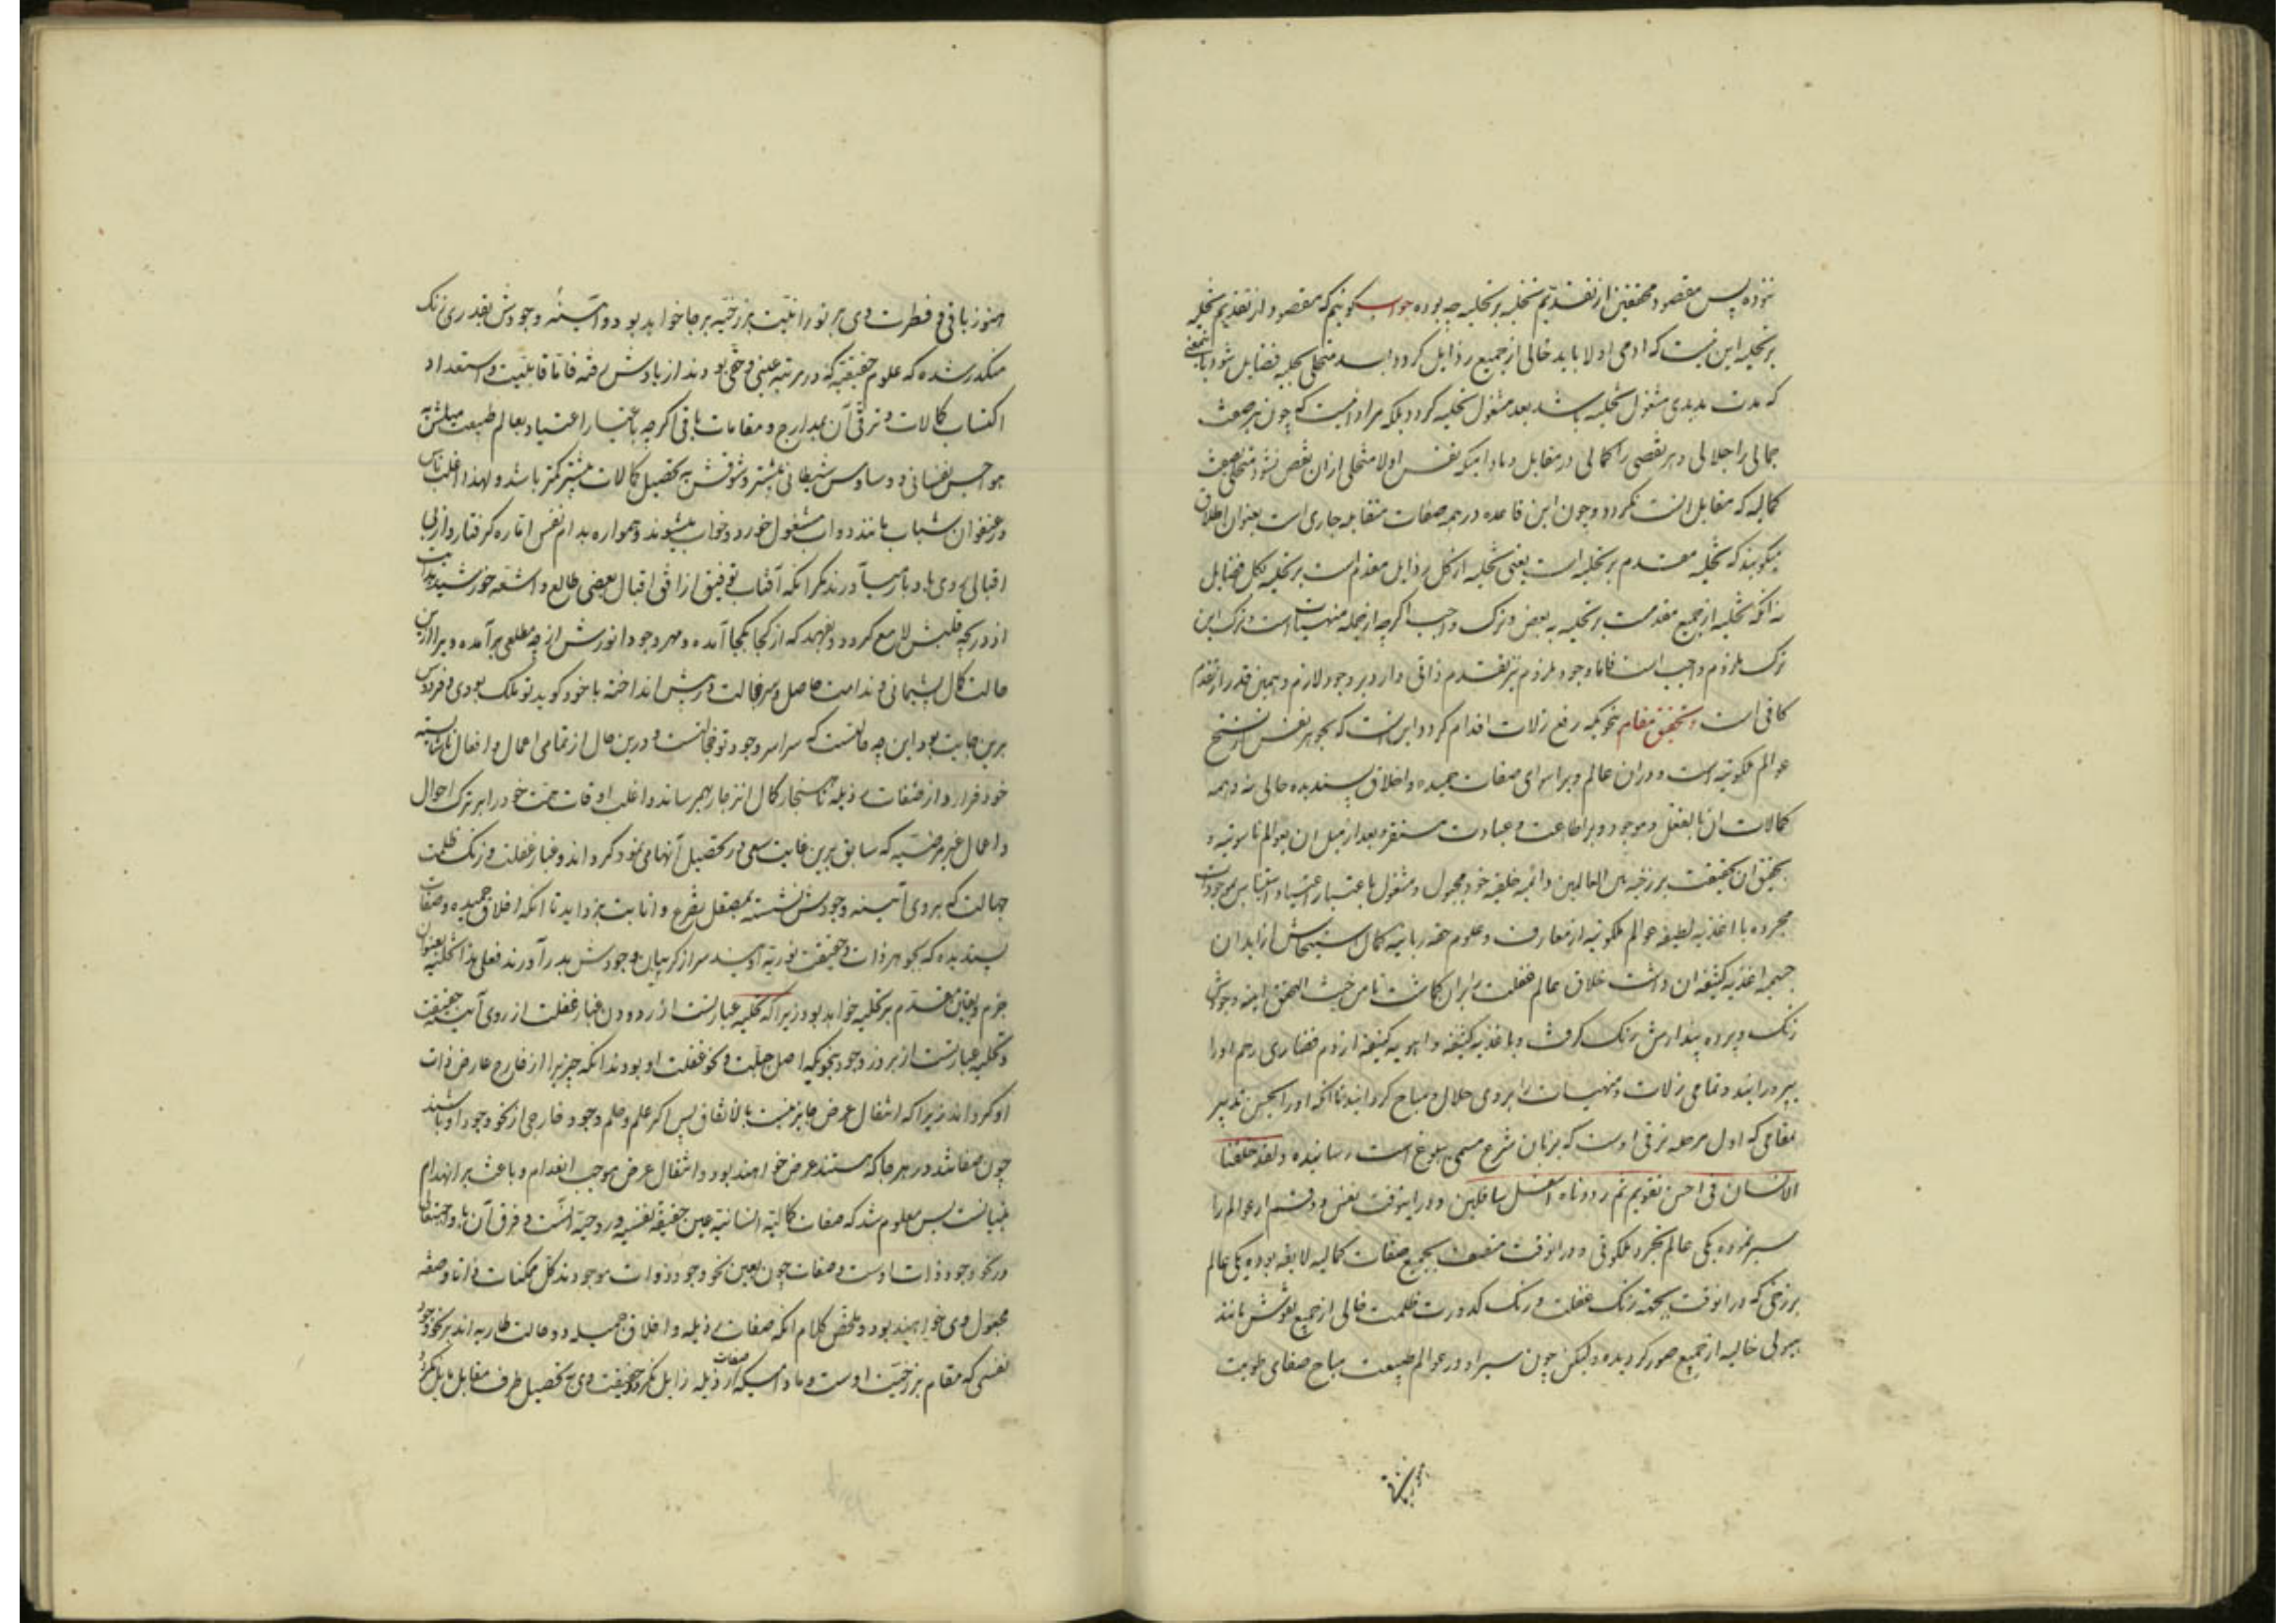 نموده پس مقصود محققین از تقدیم تخلیه بر تحلیه چه بوده جواب گوئیم که مقصود از تقدیم تخلیه
بر تحلیه این نیست که ادمی اولا باید خالی از جمیع رذایل گردد بعد متحلی بحلیه فضایل شود باینمعنی
که مدت مدیدی مشغول تخلیه باشد بعد مشغول تحلیه گردد بلکه مراد انست که چون هر صفت
جمالی را جلالی و هر نقصی را کمالی در مقابل و مادامیکه نفس اولا متخلی ازان نقص نشود متحلی بصفت
کمالیه که مقابل انست نگردد و چون این قاعده در همه صفات متقابله جاری است بعنوان اطلاق
میگویند که تخلیه مقدم بر تحلیه است یعنی تخلیه از کل رذایل مقدم است بر تحلیه بکل فضایل
نه انکه تخلیه از جمیع مقدمست بر تحلیه به بعض و ترک واجب اگرچه از جمله منهیات است و ترک این
ترک ملزوم واجب است فاما وجود ملزوم نیز تقدم ذاتی دارد بر وجود لازم و همین قدر از تقدم
کافی است و تحقیق مقام بنحویکه رفع زلات اقدام گردد این است که جوهر نفس از سنخ
عوالم ملکوتیه است و دران عالم ویرا سوای صفات حمیده و اخلاق پسندیده حالی نه و همه
کمالات ان بالفعل موجود و بر اطاعت و عبادت مستقر و بعد از میل ان بعوالم ناسوتیه و
تحقق ان بحقیقت برزخیه بین العالمین دائمه خلیقه خود مجهول و مشغول باعتبار اعتیاد و استیناس بموجودات
مجرده با اغذیه لطیفه عوالم ملکوتیه از معارف و علوم حقه ربانیه کمال استیحاش از ابدان
جسمیه و اغذیه کثیفه ان داشت خلاق عالم غفلت بران گماشت تا من حیث التحقق آینه وجودش
زنک و پرده پندارش رنک گرفت و با غذیه کثیفه و اهویه کثیفه از دم فضاری رحم او را
بپرورانید و تمامی زلات و منهیات را بروی حلال و مباح گردانید تا انکه او را بحسن تدبیر
بمقامی که اول مرحله ترقی اوست که بزبان شرع مسمی ببلوغ است رسانیده و لقد خلقنا
الانسان فی احسن تقویم ثم رددناه اسفل سافلین و در اینوقت نفس دو قسم از عوالم را
سیر نموده یکی عالم تجرد ملکوتی و در انوقت متصف بجمیع صفات کمالیه لایقه بوده و یکی عالم
برزخی که در انوقت بجهة زنک غفلت و رنک کدورت ظلمت خالی از جمیع نقوش مانند
هیولی خالیه از جمیع صور گردیده و لیکن چون سیر او در عوالم طبیعت مباح صفای طویت
هنوز باقی و فطرت وی بر نورانیت برزخیه برجا خواهد بود و آیینه وجودش بقدری زنک
مکدر شده که علوم حقیقیه که در مرتبه عینی و حقی بودند از یادش رفته فاما قابلیت و استعداد
اکتساب کمالات و ترقی آن بمدارج و مقامات باقی اگرچه باعتبار اعتیاد بعالم طبیعت میلش به
هواجس نفسانی و وساوس شیطانی بیشتر و شوقش به تحصیل کمالات بیشتر کمتر باشد و لهذا اغلب ناس
در عنفوان شباب مانند دواب مشغول خورد و خواب میشوند و همواره بدام نفس اماره گرفتار و از بی
اقبالی روی بادبار میآورند مگر انکه آفتاب توفیق از افق اقبال بعضی طالع و اشعه خورشید هدایت
از دریچه قلبش لامع گردد و بفهمد که از کجا بکجا آمده و مهر وجود انورش از چه مطلعی برآمده ویرا ازین
حالت کمال پشیمانی و ندامت حاصل و سر خجالت در پیش انداخته با خود گوید تو ملک بودی و فردوس
برین جایت بود این چه حالتست که سراسر وجود تو خجالتست و درین حال از تمامی اعمال و افعال ناشایسته
خود فرار و از صفات رذیله ناهنجار کمال انزجار بهم رساند و اغلب اوقات همت خود را بر ترک احوال
و اعمال غیر مرضیه که سابق برین غایت سعی در تحصیل آنها می نمود گرداند و غبار غفلت و زنک ظلمت
جهالت که بروی آیینه وجودش نشسته بمصقل تضرع و انابت بزداید تا انکه اخلاق حمیده و صفات
پسندیده که بجوهر ذات و حقیقت نوریه اویند سر از گریبان وجودش بدر آورند فعلی هذا تخلیه بعنوان
جزم و یقین مقدم بر تحلیه خواهد بود زیرا که تخلیه عبارتست از زدودن غبار غفلت از روی آینه حقیقت
و تحلیه عبارتست از بروز وجود بنحویکه اصل جبلت و نحو غفلت او بودند انکه چیزی را از خارج عارض ذات
او گرداند زیرا که انتقال عرض جایز نیست بالاتفاق پس اگر علم و حلم وجود خارجی از نحو وجود او باشند
چون صفاتند در هر جا که هستند عرض خواهند بود و انتقال عرض موجب انعدام و باعث بر انهدام
بنیانست پس معلوم شد که صفات کمالیه انسانیه عین حقیقة نفسیه و روحیه است و فرق آن با واجبتعالی
در نحو وجود ذات اوست و صفات چون بعین نحو وجود ذوات موجودند کل ممکنات ذاتا و صفة
مجعول وی خواهند بود و ملخص کلام انکه صفات رذیله و اخلاق جمیله دو حالت طاریه اند بر نحو وجود
نفسی که مقام برزخیت اوست و مادامیکه از صفات رذیله زایل نگردد حقیقت وی به تحصیل طرف مقابل نایل نگردد